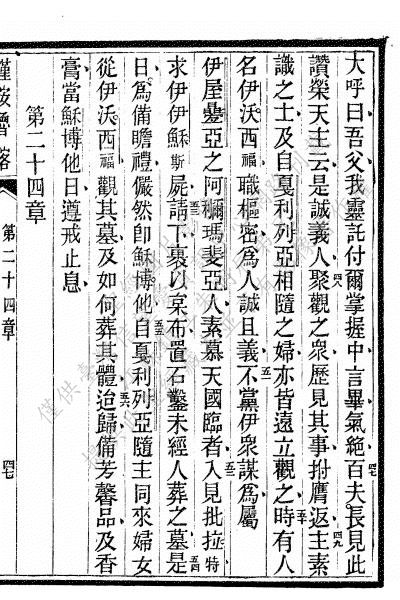 大呼曰吾父我靈託付爾掌握中言畢氣絕百夫長見此
讚榮天主云是誠義人聚觀之衆歷見其事拊膺返主素
識之士及自戛利列亞相隨之婦亦皆遠立觀之時有人
名伊沃西福職樞密爲人誠且義不黨伊衆謀爲屬
伊屋疊亞之阿穪瑪斐亞人素慕天國臨者入見批拉特
求伊伊穌斯屍請下裹以枲布置石鑿未經人葬之墓是
日爲備瞻禮儼然卽穌博他自戛利列亞隨主同來婦女
從伊沃西福觀其墓及如何葬其體迨歸備芳馨品及香
膏當穌博他日遵戒止息
第二十四章
第二十四章